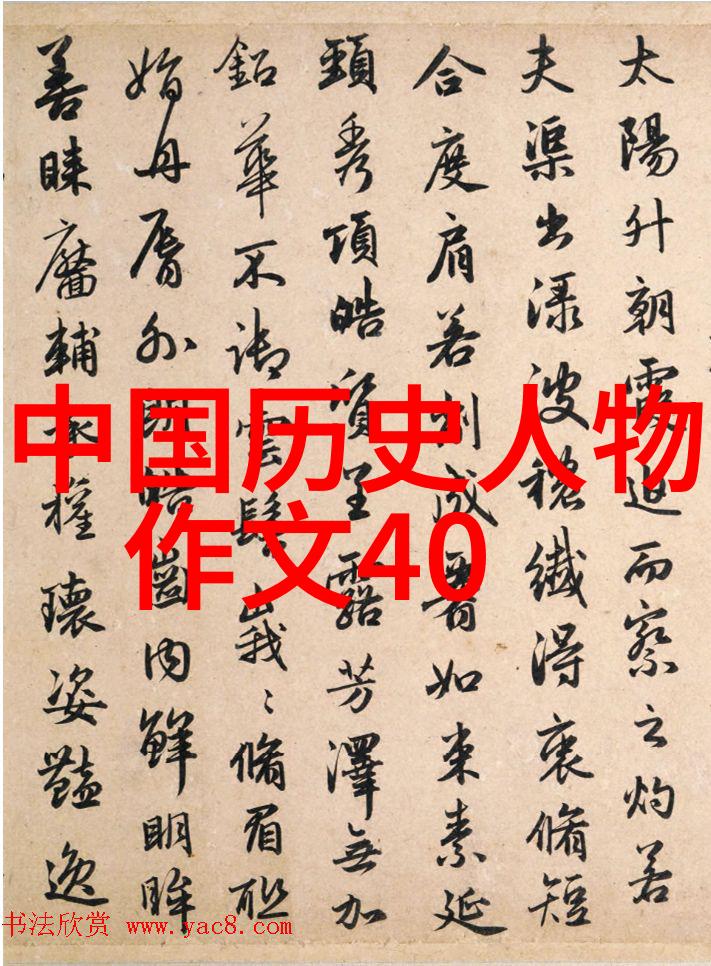 太陽升朝霞迫而察之灼若
夫渠出渌波穠纖得衷脩短
合度肩若削成如束素延
頸秀項皓質呈露芳澤無加
鉛華不御雲髻峩〻脩眉聯
娟丹脣外朗皓齒内鮮明眸
善睞靨輔承權瓌姿豔逸
中国历史人物
作文40
书法欣赏 www.yac8.com